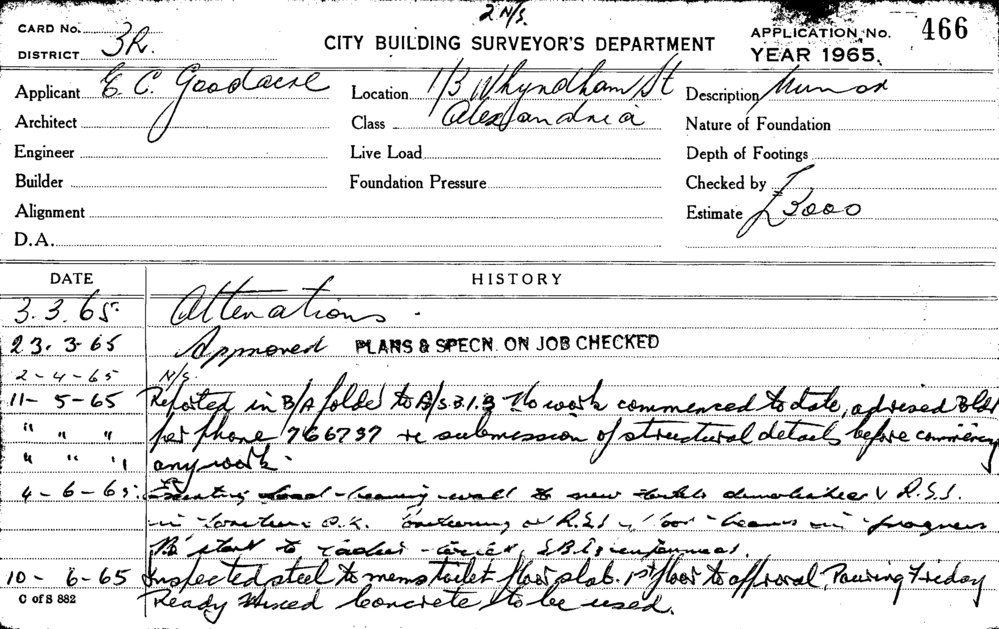 2 N/S.
CARD No.
DISTRICT 3R.
CITY BUILDING SURVEYOR'S DEPARTMENT
APPLICATION No. 466
YEAR 1965.
Applicant E C. Goodacre Location 1/3 Whyndham St Description Minor
Architect Class Alexandria Nature of Foundation
Engineer Live Load Depth of Footings
Builder Foundation Pressure Checked by
Alignment Estimate £3000
D.A.
DATE HISTORY
3. 3. 65. Alterations.
23. 3. 65 Approved PLANS & SPECN. ON JOB CHECKED
2-4-65 N/S.
11- 5-65 Reported in B/A folder to B/S. No work commenced to date, advised Bldr
" " " per phone 766737 re submission of structural details before commencing
" " " any work.
4-6-65. Existing load-bearing wall to new toilets demolished & R.S.J.
in O.K. R.S.J. floor beams in progress
start to
10- 6-65 Inspected steel to mens toilet floor slab. 1st floor to approval Pouring Friday
C of S 882 Ready Mixed Concrete to be used.